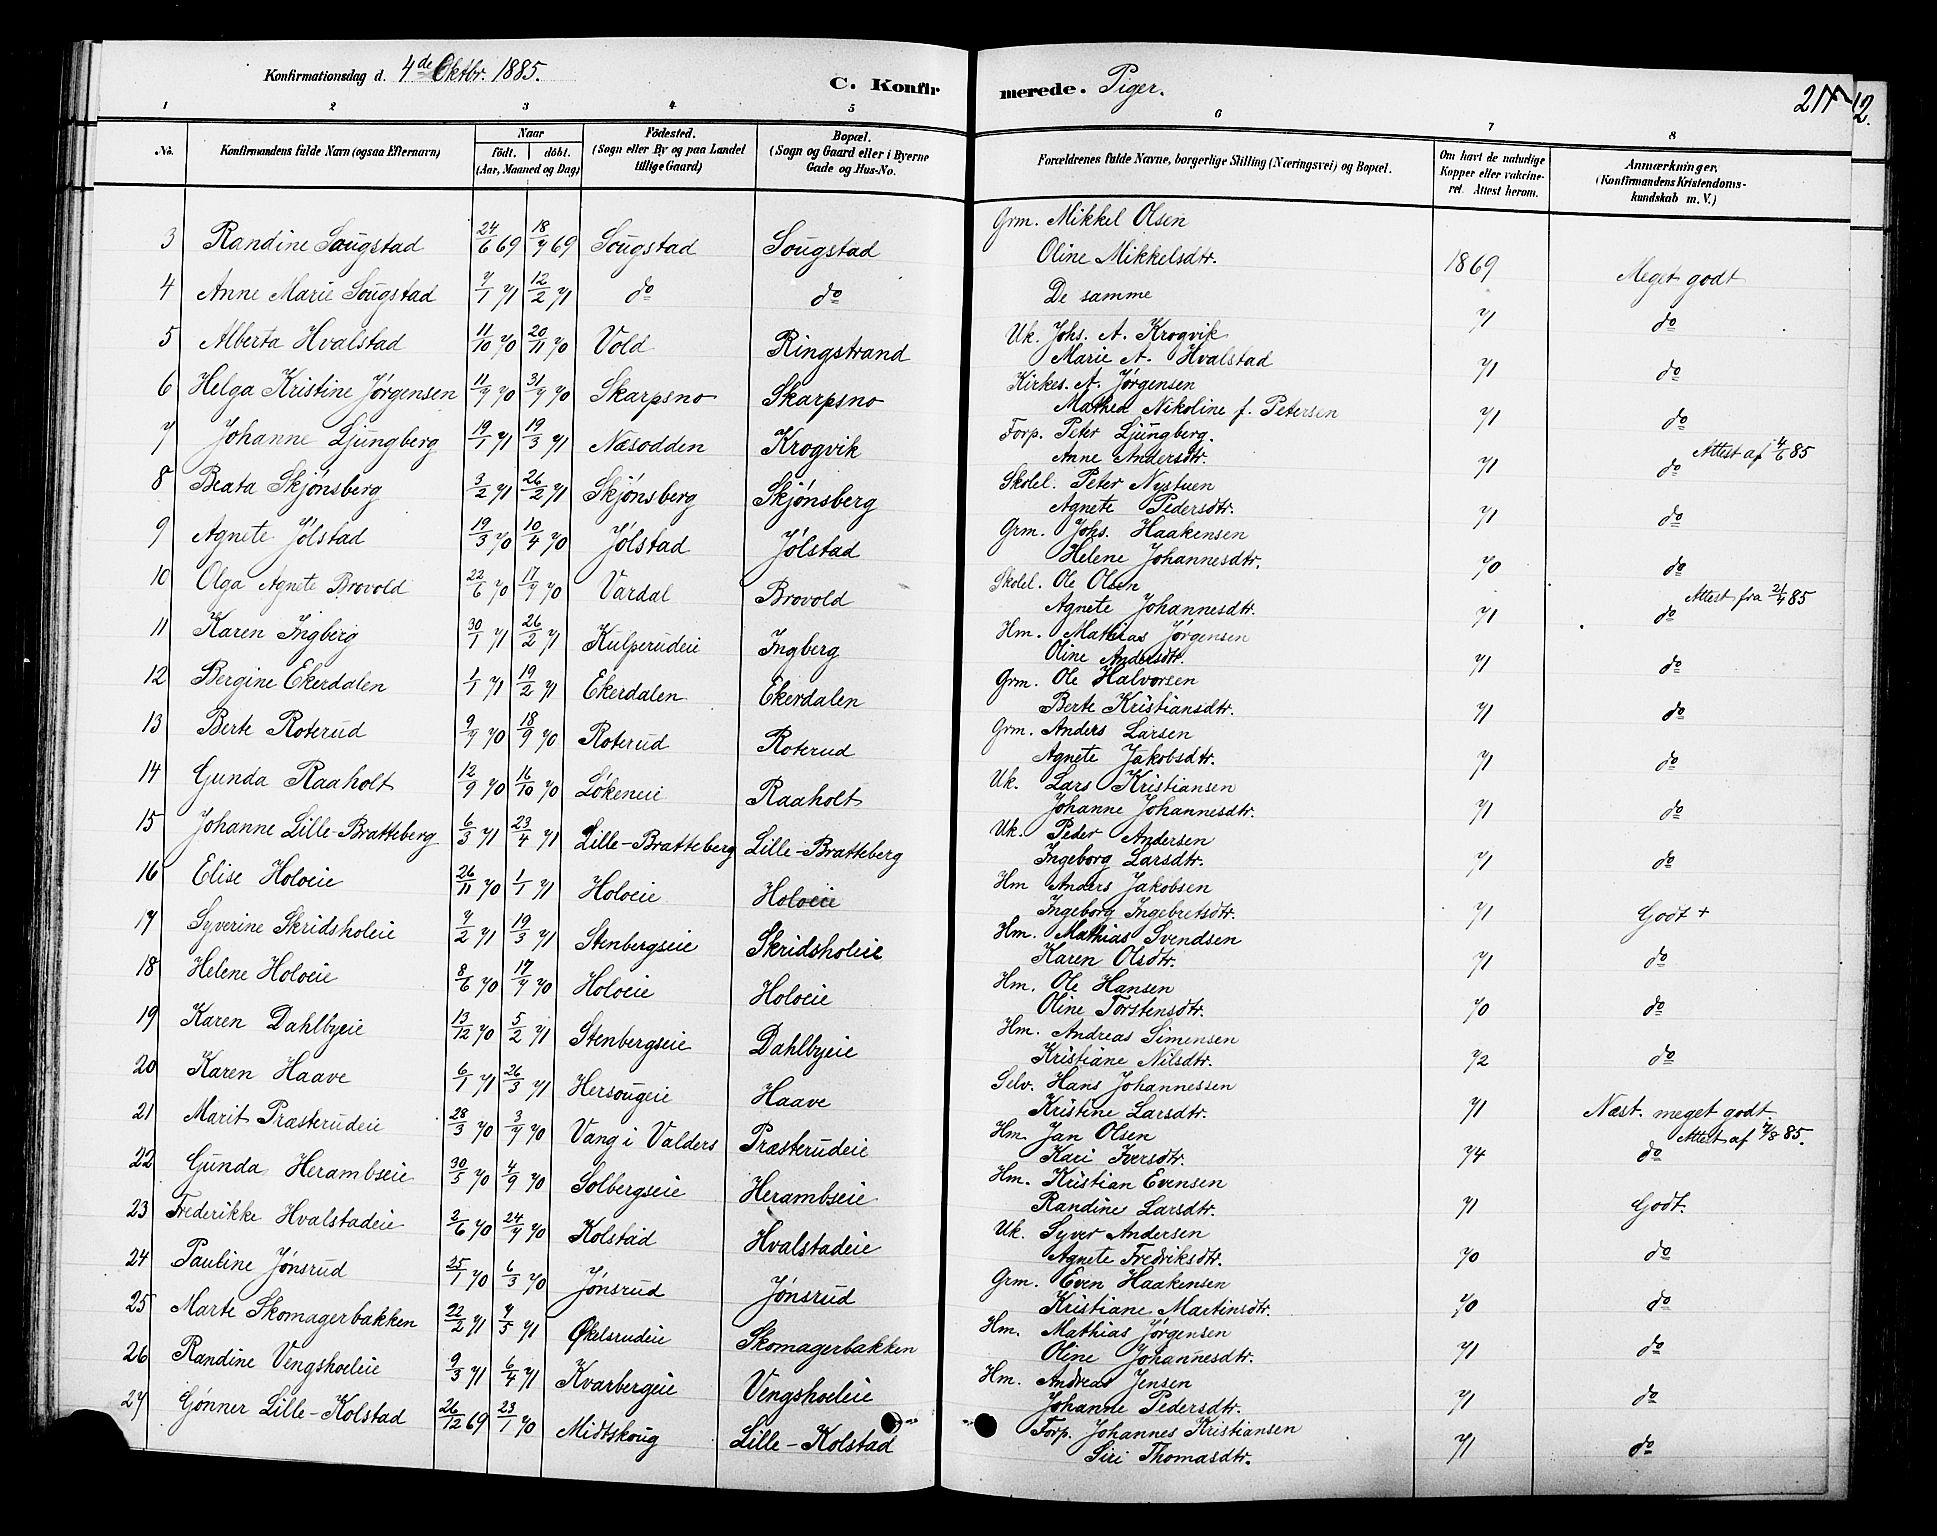 Konfirmationsdag d. 4de Oktbr. 1885.
C. Konfirmerede. Piger.
1 2 3 4 5 6 7 8
No. Konfirmandens fulde Navn (ogsaa Efternavn) Naar født. døbt. (Aar, Maaned og Dag) Fødested. (Sogn eller By og paa Landet tillige Gaard) Bopæl. (Sogn og Gaard eller i Byerne Gade og Hus-No. Forældrenes fulde Navne, borgerlige Stilling (Næringsvei) og Bopæl. Om havt de naturlige Kopper eller vakcineret. Attest herom. Anmærkninger, (Konfirmandens Kristendomskundskab m. V.)
3 Randine Sougstad 24/6 69 18/7 69 Sougstad Sougstad Grm. Mikkel Olsen
Oline Mikkelsdtr. 1869 Meget godt
4 Anne Marie Sougstad 7/1 71 12/2 71 do do De samme 71 do
5 Alberta Hvalstad 11/10 70 20/11 70 Vold Ringstrand Uk. Johs. A. Krogvik
Marie A. Hvalstad 71 do
6 Helga Kristine Jørgensen 11/9 70 31/7 70 Skarpsno Skarpsno Kirkes. A. Jørgensen
Mathea Nikoline f. Petersen 71 do
7 Johanne Ljungberg 19/1 71 19/3 71 Næsodden Krogvik Forp. Peter Ljungberg.
Anne Andersdtr. 71 do Attest af 4/6 85
8 Beata Skjønsberg 3/2 71 26/2 71 Skjønsberg Skjønsberg Skolel. Peter Nystuen
Agnete Pedersdtr. 71 do
9 Agnete Jølstad 19/3 70 10/4 70 Jølstad Jølstad Grm. Johs. Haakensen
Helene Johannesdtr. 70 do
10 Olga Agnete Brovold 22/6 70 17/7 70 Vardal Brovold Skolel. Ole Olsen
Agnete Johannesdtr. 71 do Attest fra 21/4 85
11 Karen Ingberg 30/1 71 26/2 71 Kulperudeie Ingberg Hm. Mathias Jørgensen
Oline Andersdtr. 71 do
12 Bergine Ekerdalen 1/1 71 19/2 71 Ekerdalen Ekerdalen Grm. Ole Halvorsen
Berte Kristiansdtr. 71 do
13 Berte Roterud 9/9 70 18/9 70 Roterud Roterud Grm. Anders Larsen
Agnete Jakobsdtr. 71 do
14 Gunda Raaholt 12/9 70 16/10 70 Løkeneie Raaholt Uk. Lars Kristiansen
Johanne Johannesdtr. 71 do
15 Johanne Lille-Bratteberg 6/3 71 23/4 71 Lille-Bratteberg Lille-Bratteberg Uk. Peder Andersen
Ingeborg Larsdtr. 71 do
16 Elise Holoeie 26/11 70 1/1 71 Holoeie Holoeie Hm Anders Jakobsen
Ingeborg Ingebretsdtr. 71 Godt +
17 Syverine Skridsholeie 7/2 71 19/3 71 Stenbergseie Skridsholeie Hm. Mathias Svendsen
Karen Olsdtr. 71 do
18 Helene Holoeie 8/6 70 17/7 70 Holoeie Holoeie Hm. Ole Hansen
Oline Torstensdtr. 70 do
19 Karen Dahlbyeie 13/12 70 5/2 71 Stenbergseie Dahlbyeie Hm. Andreas Simensen
Kristiane Nilsdtr. 72 do
20 Karen Haave 6/1 71 26/3 71 Hersougeie Haave Selv. Hans Johannessen
Kristine Larsdtr. 71 Næst. meget godt
21 Marit Præsterudeie 28/3 70 3/7 70 Vang i Valders Præsterudeie Hm. Jan Olsen
Kari Iversdtr. 74 do Attest af 7/8 85.
22 Gunda Herambseie 30/5 70 4/9 70 Solbergseie Herambseie Hm. Kristian Evensen
Randine Larsdtr. 71 Godt.
23 Frederikke Hvalstadeie 2/6 70 24/7 70 Kolstad Hvalstadeie Uk. Syver Andersen
Agnete Fredriksdtr. 70 do
24 Pauline Jønsrud 25/1 70 6/3 70 Jønsrud Jønsrud Grm. Even Haakensen
Kristiane Martinsdtr. 70 do
25 Marte Skomagerbakken 22/2 71 7/5 71 Økelsrudeie Skomagerbakken Hm. Mathias Jørgensen
Oline Johannesdtr. 71 do
26 Randine Vengshoeleie 9/3 71 6/4 71 Kvarbergeie Vengshoeleie Hm. Andreas Jensen
Johanne Pedersdtr. 71 do
27 Gønner Lille-Kolstad 26/12 69 23/1 70 Midtskoug Lille-Kolstad Forp. Johannes Kristiansen
Siri Thomasdtr. 71 do